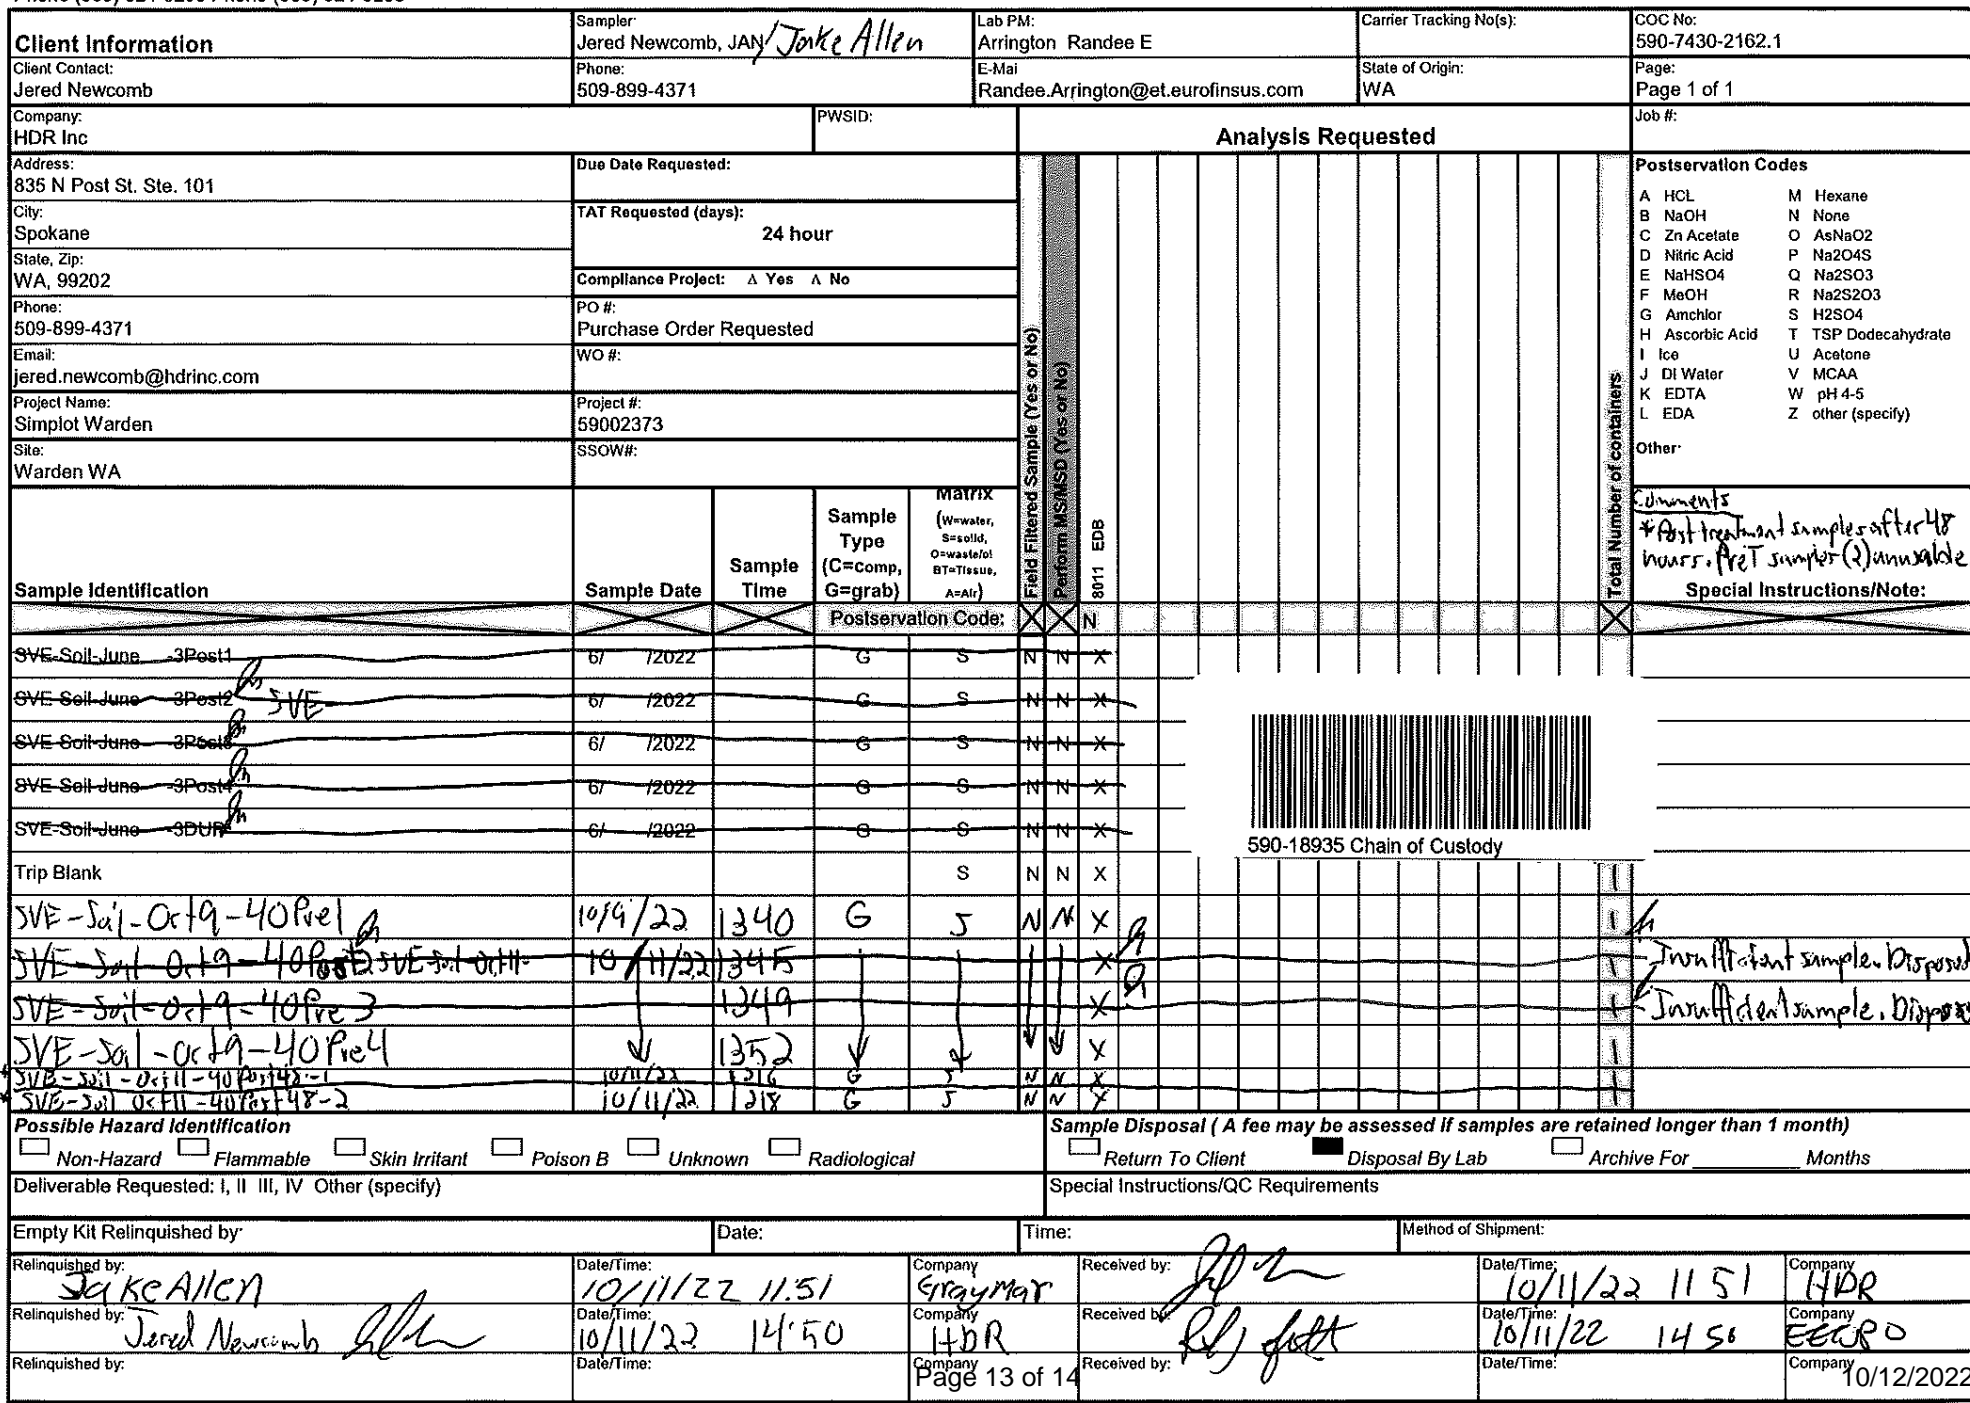 Client Information
Sampler:
Jered Newcomb, JAN/Jake Allen
Lab PM:
Arrington Randee E
Carrier Tracking No(s):
COC No:
590-7430-2162.1
Client Contact:
Jered Newcomb
Phone:
509-899-4371
E-Mai
Randee.Arrington@et.eurofinsus.com
State of Origin:
WA
Page:
Page 1 of 1
Company:
HDR Inc
PWSID:
Analysis Requested
Job #:
Address:
835 N Post St. Ste. 101
Due Date Requested:
City:
Spokane
TAT Requested (days):
24 hour
State, Zip:
WA, 99202
Compliance Project: Δ Yes Λ No
Phone:
509-899-4371
PO #:
Purchase Order Requested
Email:
jered.newcomb@hdrinc.com
WO #:
Project Name:
Simplot Warden
Project #:
59002373
Site:
Warden WA
SSOW#:
Field Filtered Sample (Yes or No)
Perform MS/MSD (Yes or No)
8011 EDB
Total Number of containers
Postservation Codes
A HCL M Hexane
B NaOH N None
C Zn Acetate O AsNaO2
D Nitric Acid P Na2O4S
E NaHSO4 Q Na2SO3
F MeOH R Na2S2O3
G Amchlor S H2SO4
H Ascorbic Acid T TSP Dodecahydrate
I Ice U Acetone
J DI Water V MCAA
K EDTA W pH 4-5
L EDA Z other (specify)
Other
Comments
* Post treatment samples after 48
hours. PreT samples (2) unusable
Sample Identification
Sample Date
Sample Time
Sample Type (C=comp, G=grab)
Matrix (W=water, S=solid, O=waste/oil BT=Tissue, A=Air)
Special Instructions/Note:
Postservation Code: X X N X
SVE-Soil-June -3Post1 6/ /2022 G S N N X
SVE-Soil-June -3Post2 SVE 6/ /2022 G S N N X
SVE-Soil-June -3Post3 6/ /2022 G S N N X
SVE-Soil-June -3Post4 6/ /2022 G S N N X
SVE-Soil-June -3DUP 6/ /2022 G S N N X
590-18935 Chain of Custody
Trip Blank S N N X 1
SVE-Soil-Oct9-40Pre1 10/9/22 1340 G S N N X 1
SVE-Soil-Oct9-40 SVE-Soil-Oct11- 10/11/22 1345 X 1 Insufficient sample. Disposed
SVE-Soil-Oct9-40Pre3 1349 X 1 Insufficient sample. Disposed
SVE-Soil-Oct9-40Pre4 1352 X 1
* SVE-Soil-Oct11-40Post48-1 10/11/22 1216 G S N N X 1
* SVE-Soil Oct11-40Post48-2 10/11/22 1218 G S N N X 1
Possible Hazard Identification
Non-Hazard Flammable Skin Irritant Poison B Unknown Radiological
Sample Disposal ( A fee may be assessed if samples are retained longer than 1 month)
Return To Client Disposal By Lab Archive For ________ Months
Deliverable Requested: I, II III, IV Other (specify)
Special Instructions/QC Requirements
Empty Kit Relinquished by
Date:
Time:
Method of Shipment:
Relinquished by: Jake Allen
Date/Time: 10/11/22 11.51
Company GrayMar
Received by:
Date/Time: 10/11/22 11 51
Company HDR
Relinquished by: Jered Newcomb
Date/Time: 10/11/22 14:50
Company HDR
Received by:
Date/Time: 10/11/22 14 50
Company
Relinquished by:
Date/Time:
Company
Received by:
Date/Time:
Company
Page 13 of 14
10/12/2022